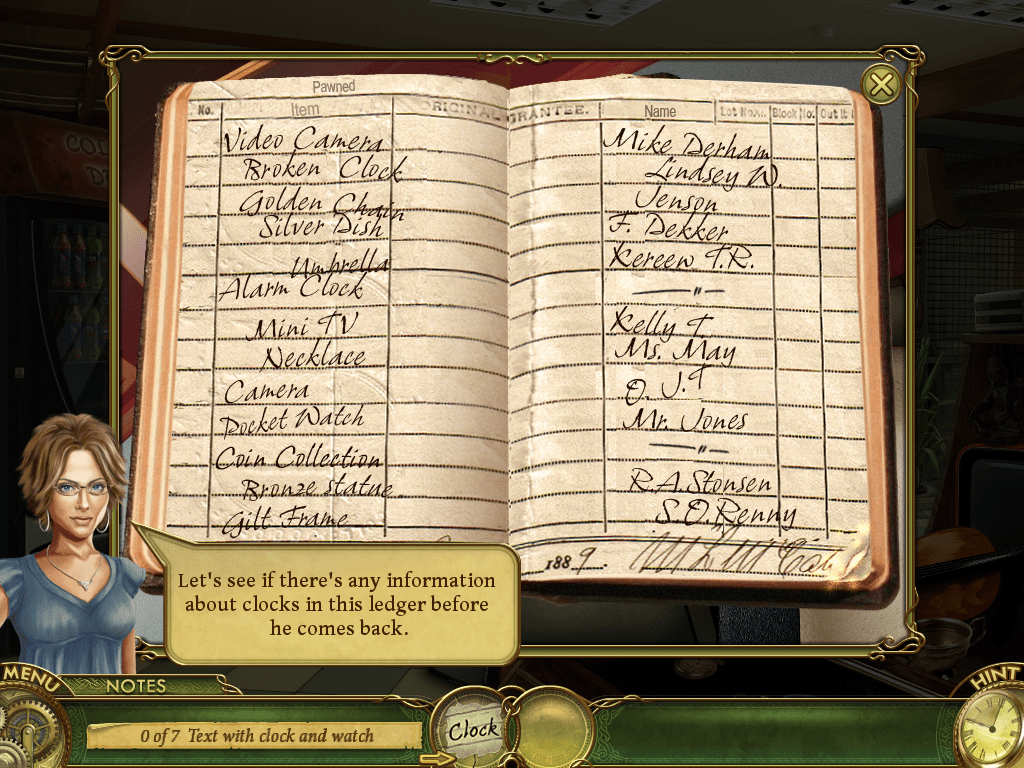 Pawned
No. Item ORIGINAL GRANTEE. Name Lot No. Block No. Out
Video Camera Mike Derham
Broken Clock Lindsey W.
Golden Chain Jenson
Silver Dish F. Dekker
Umbrella Kereen T.R.
Alarm Clock — " —
Mini TV Kelly T
Necklace Ms. May
Camera O. J.T
Pocket Watch Mr. Jones
Coin Collection — " —
Bronze statue R.A.Stonsen
Gilt Frame S.O.Renny
1889.
Let's see if there's any information
about clocks in this ledger before
he comes back.
MENU
NOTES
HINT
0 of 7 Text with clock and watch
Clock